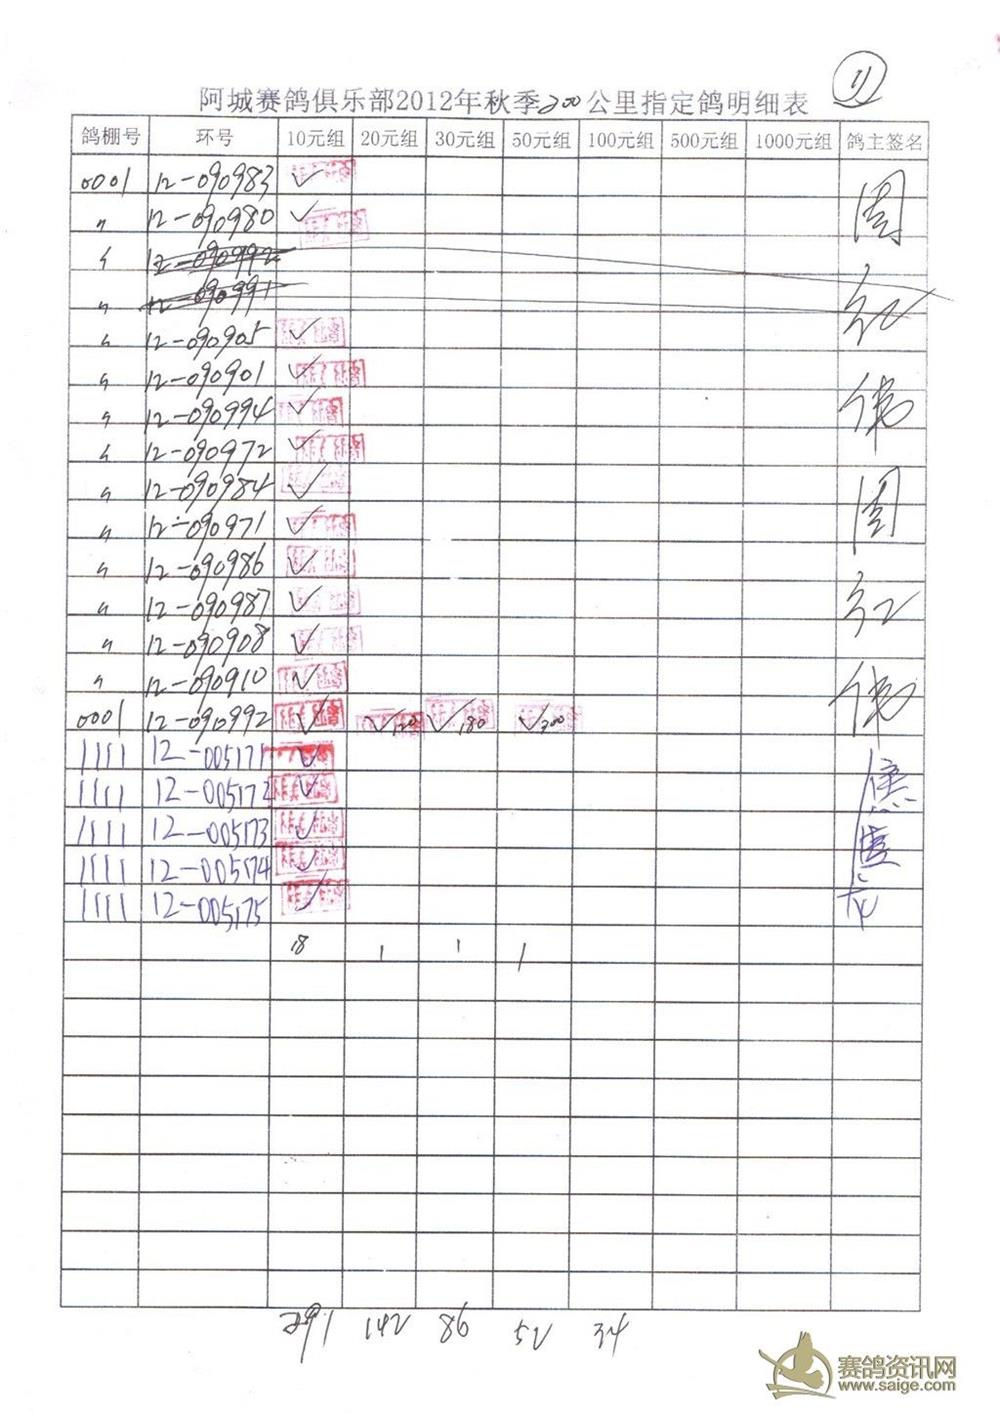 11
阿城赛鸽俱乐部2012年秋季200公里指定鸽明细表
鸽棚号 环号 10元组 20元组 30元组 50元组 100元组 500元组 1000元组 鸽主签名
0001 12-090983 ✓
〃 12-090980 ✓ 周
〃 12-090992
〃 12-090991 红
〃 12-090905 ✓
〃 12-090901 ✓
〃 12-090994 ✓ 伟
〃 12-090972 ✓
〃 12-090984 ✓
〃 12-090971 ✓ 周
〃 12-090986 ✓
〃 12-090987 ✓ 红
〃 12-090908 ✓
〃 12-090910 ✓ 伟
0001 12-090992 ✓ ✓120 ✓180 ✓300
1111 12-005171 ✓
1111 12-005172 ✓
1111 12-005173 ✓
1111 12-005174 ✓
1111 12-005175 ✓
18 1 1 1
291 142 86 52 34
赛鸽资讯网
www.saige.com